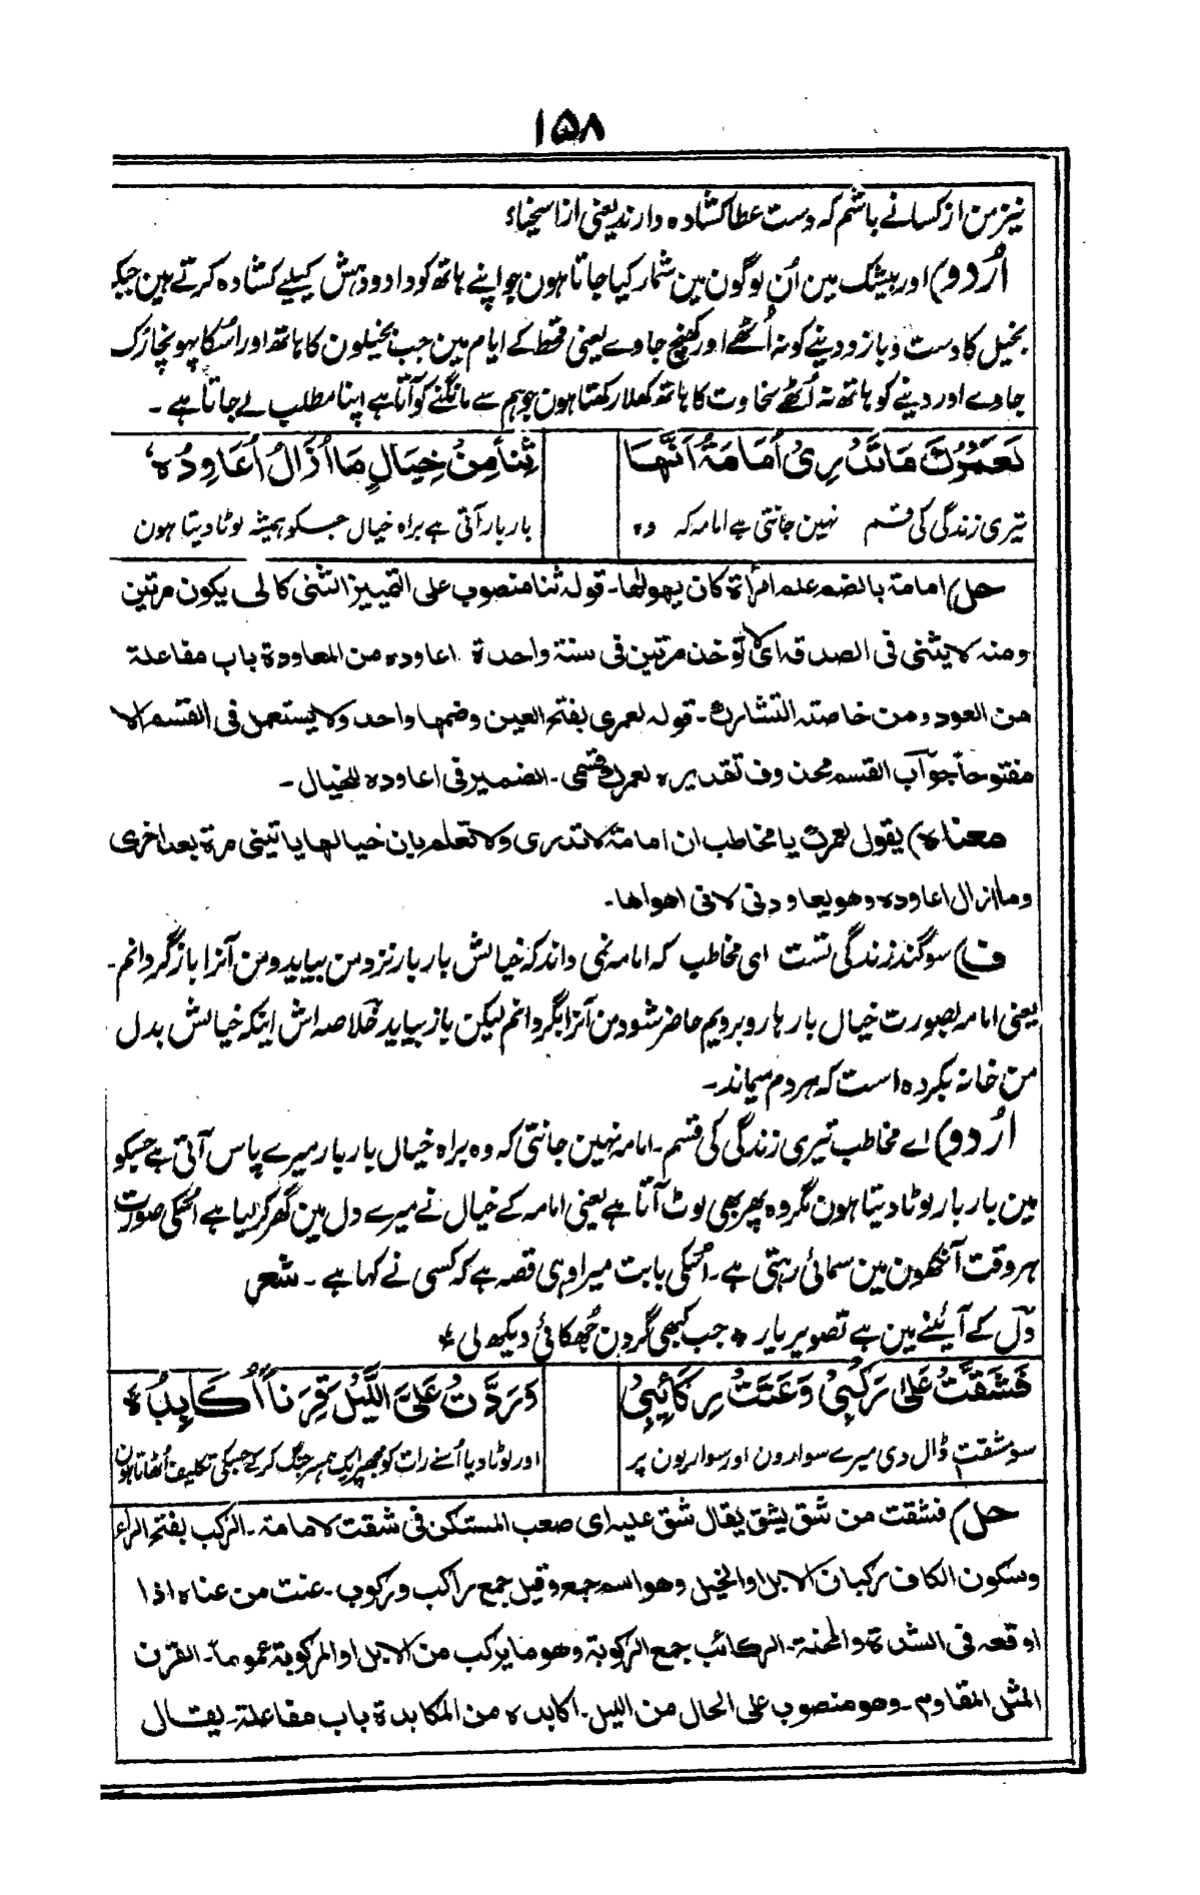 ۱۵۸
نیز من از کسانے باشم کہ دست عطا کشادہ دارند یعنی از اسخیاء
اُردو) اور بیشک مین اُن لوگون مین شمار کیا جاتا ہون جو اپنے ہاتھ کو داد و دہش کیلیے کشادہ کرتے ہین جبکہ
بخیل کا دست و بازو دینے کو نہ اُٹھے اور کھنچ جاوے یعنی قحط کے ایام مین جب بخیلون کا ہاتھ اور اسکا پہونچا رُک
جاوے اور دینے کو ہاتھ نہ اُٹھے سخاوت کا ہاتھ کھلا رکھتا ہون جو ہم سے مانگنے کو آتا ہے اپنا مطلب لے جاتا ہے ۔
لَعَمْرُكَ مَا تَدْرِیْ اُمَامَةُ اَنَّهَا
ثِناً مِنْ خِيَالٍ مَا اُزَالُ اُعَاوِدُہ
تیری زندگی کی قسم نہین جانتی ہے امامہ کہ وہ
بار بار آتی ہے براہ خیال جسکو ہمیشہ لوٹا دیتا ہون
حل) امامة بالضم علم امرأة كان يهواها۔ قوله ثنا منصوب على التمييز الثنى كالى يكون مرتين
ومنه لا يثنى فى الصدقة اى لا توخذ مرتين فى سنة واحدة اعاوده من المعاودة باب مفاعلة
من العود ومن خاصته التشارك۔ قوله لعمرى بفتح العين وضمها واحد ولا يستعمل فى القسم الا
مفتوحاً جواب القسم محذوف تقديره لعمرك قسمى۔ الضمير فى اعاوده للخيال۔
معناه) يقول لعمرك يا مخاطب ان امامة لا تدرى ولا تعلم بان خيالها ياتينى مرة بعد اخرى
وما ازال اعاوده وهو يعاودنى لانى اهواها۔
ف) سوگند زندگی تست ای مخاطب کہ امامہ نمی داند کہ خیالش بار بار نزد من بیاید و من آنرا باز گردانم۔
یعنی امامہ بصورت خیال بارہا روبرویم حاضر شود من آنرا بگردانم لیکن باز بیاید خلاصہ اش اینکہ خیالش بدل
من خانہ بکردہ است کہ ہر دم میماند۔
اُردو) اے مخاطب تیری زندگی کی قسم۔ امامہ نہین جانتی کہ وہ براہ خیال بار بار میرے پاس آتی ہے جسکو
مین بار بار لوٹا دیتا ہون مگر وہ پھر بھی لوٹ آتا ہے یعنی امامہ کے خیال نے میرے دل مین گھر کر لیا ہے اُسکی صورت
ہر وقت آنکھون مین سمائی رہتی ہے۔ اُسکی بابت میرا وہی قصہ ہے کہ کسی نے کہا ہے ۔ شعر
دل کے آئینے مین ہے تصویر یار ٭ جب کبھی گردن جُھکائی دیکھ لی ٭
فَشَقَّتْ عَلٰى رَكْبِيْ وَعَنَتْ رِكَائِبِيْ
وَرَدَّتْ عَلَیَّ اللَّيْلَ قِرْناً اُكَابِدُہ
سو مشقت ڈال دی میرے سوارون اور سواریون پر
اور لوٹا دیا اُسنے رات کو مجھپر ایک ہمسر جنگ کرکے جسکی تکلیف اُٹھاتا ہون
حل) فشقت من شق يشق يقال شق عليه اى صعب المستكن فى شقت لامامة۔ الركب بفتح الراء
وسكون الكاف ركبان الابل او الخيل وهو اسم جمع وقيل جمع راكب وركوب۔ عنت من عناه اذا
اوقعه فى الشدة والمحنة۔ الركائب جمع الركوبة وهو ما يركب من الابل او المركوبة عموماً۔ القرن
المثل المقاوم۔ وهو منصوب على الحال من الليل۔ اكابده من المكابدة باب مفاعلة۔ يقال